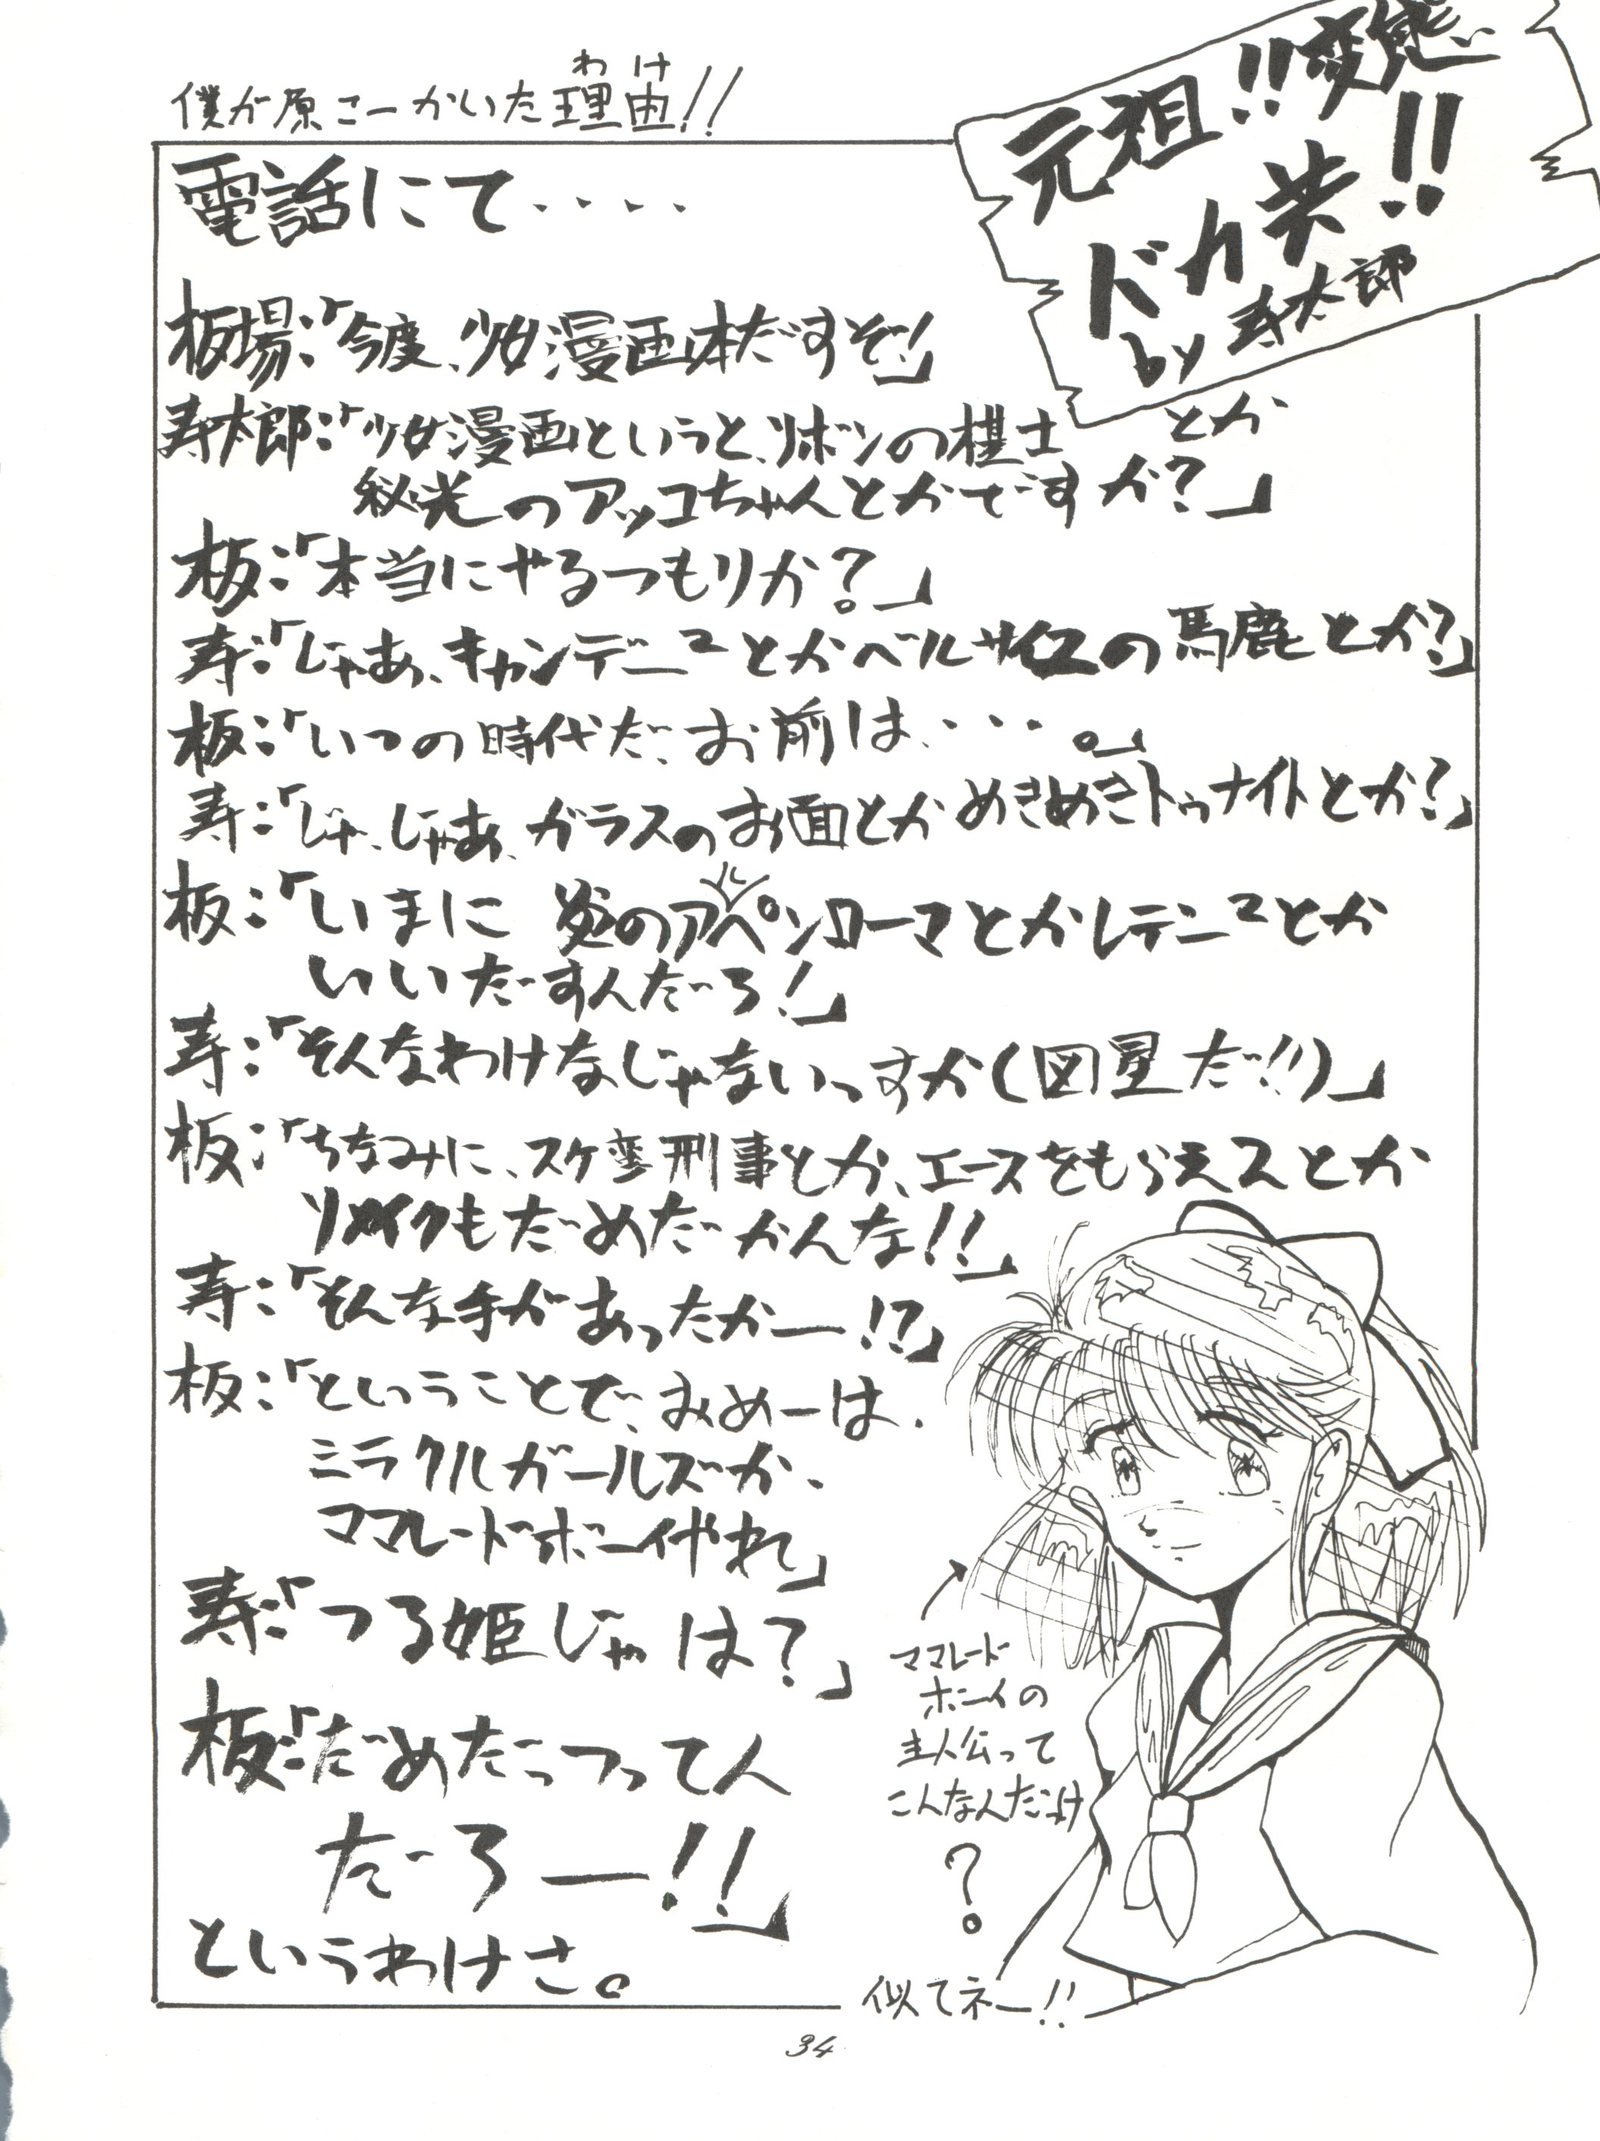 僕が原こーかいた理由!!
わけ
元祖!!変態
ドカ
!!
by 寿太郎
電話にて‥‥
板場:「今度、少女漫画本だすぞ!」
寿太郎:「少女漫画というと、リボンの棋士とか
秘光のアッコちゃんとかですか?」
板:「本当にやるつもりか?。」
寿:「じゃあ、キャンデニ²とかベルサイユの馬鹿とか?」
板:「いつの時代だ、お前は‥‥。」
寿:「じゃ、じゃあ、ガラスのお面とかめきめきトゥナイトとか?」
板:「いまに 炎のアルペンローマとかレテニ²とか
いいだすんだろ!」
寿:「そんなわけなじゃないっすか(図星だ!!)」
板:「ちなみに、スケ蛮刑事とか、エースをもらえ2とか
リメイクもだめだかんな!!」
寿:「そんな手があったかー!?」
板:「ということで、おめーは、
ミラクルガールズか、
ママレードボーイやれ」
寿:「つる姫じゃは?」
板:「だめだっつってん
だろー!!」
というわけさ。
ママレード
ボーイの
主人公って
こんなんだっけ
?
似てネー!!
34